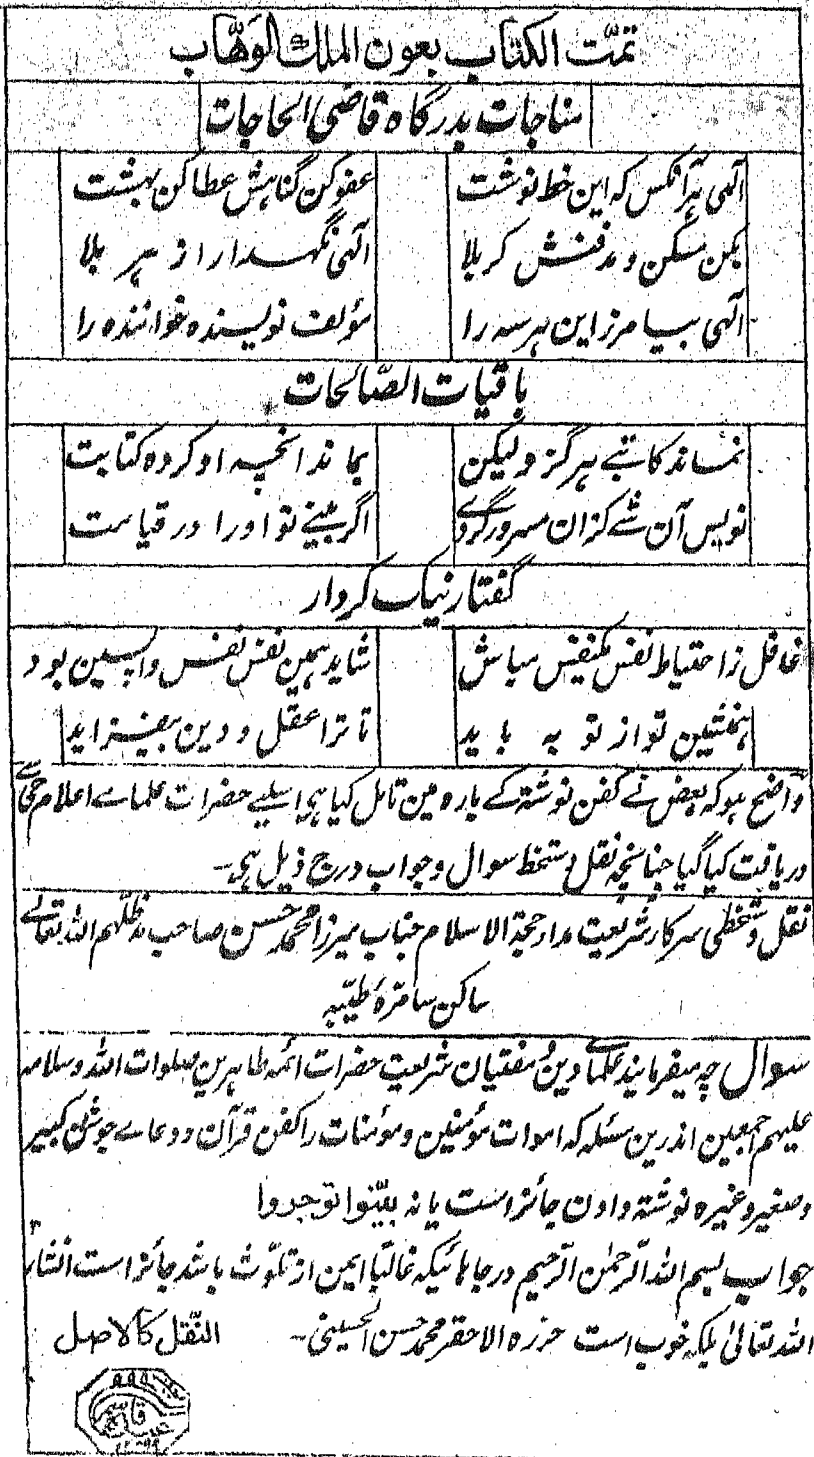 تمّت الکتاب بعون الملک الوهّاب
مناجات بدرگاه قاضی الحاجات
الٰهی هرآنکس که این خط نوشت عفو کن گناهش عطا کن بهشت
بکن مسکن و مدفنش کربلا الٰهی نگهدار از هر بلا
الٰهی بیامرز این هر سه را مؤلف نویسنده خواننده را
باقیات الصّالحات
نماند کاتبے هرگز ولیکن بماند انچه او کرده کتابت
نویس آن شے کزان مسرور گردے اگر بینے تو اورا در قیامت
گفتار نیک کردار
غافل ز احتیاط نفس یکنفس مباش شاید همین نفس نفس واپسین بود
همنشین تو از تو به باید تا ترا عقل و دین بیفزاید
واضح ہو کہ بعض نے کفن نوشتہ کے بارہ مین تامل کیا ہی اسلیے حضرات علماے اعلام حی سے
دریافت کیا گیا چنانچہ نقل دستخط سوال و جواب درج ذیل ہی۔
نقل دستخطی سرکار شریعت مدار حجۃ الاسلام جناب میرزا محمد حسن صاحب مدظلّہم اللہ تعالے
ساکن سامرۂ طیّبہ
سوال چہ میفرمایند علماے دین و مفتیان شریعت حضرات ائمہ طاہرین صلوات اللہ وسلامہ
علیہم اجمعین اندرین مسئلہ کہ اموات مؤمنین و مؤمنات را کفن قرآن و دعاے جوشن کبیر
و صغیر و غیرہ نوشتہ دادن جائز است یا نہ بیّنوا توجروا
جواب بسم اللہ الرّحمٰن الرّحیم در جاہائیکہ غالبًا ایمن از تلوّث باشد جائز است انشاء
اللہ تعالیٰ بلکہ خوب است حررہ الاحقر محمد حسن الحسینی۔ النّقل کالاصل